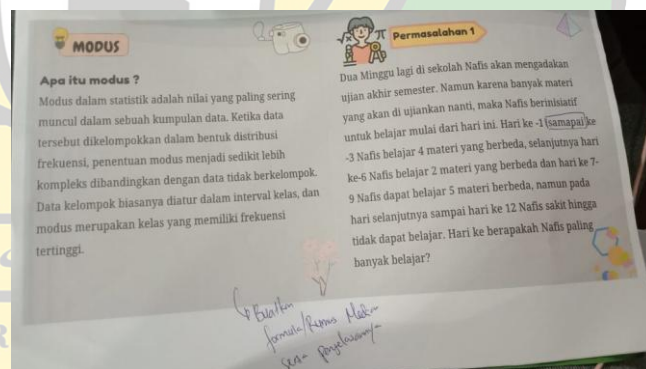 MODUS
Apa itu modus ?
Modus dalam statistik adalah nilai yang paling sering
muncul dalam sebuah kumpulan data. Ketika data
tersebut dikelompokkan dalam bentuk distribusi
frekuensi, penentuan modus menjadi sedikit lebih
kompleks dibandingkan dengan data tidak berkelompok.
Data kelompok biasanya diatur dalam interval kelas, dan
modus merupakan kelas yang memiliki frekuensi
tertinggi.
Permasalahan 1
Dua Minggu lagi di sekolah Nafis akan mengadakan
ujian akhir semester. Namun karena banyak materi
yang akan di ujiankan nanti, maka Nafis berinisiatif
untuk belajar mulai dari hari ini. Hari ke -1 samapai ke
-3 Nafis belajar 4 materi yang berbeda, selanjutnya hari
ke-6 Nafis belajar 2 materi yang berbeda dan hari ke 7-
9 Nafis dapat belajar 5 materi berbeda, namun pada
hari selanjutnya sampai hari ke 12 Nafis sakit hingga
tidak dapat belajar. Hari ke berapakah Nafis paling
banyak belajar?
Buatkan
formula/Rumus
serta penjelasannya